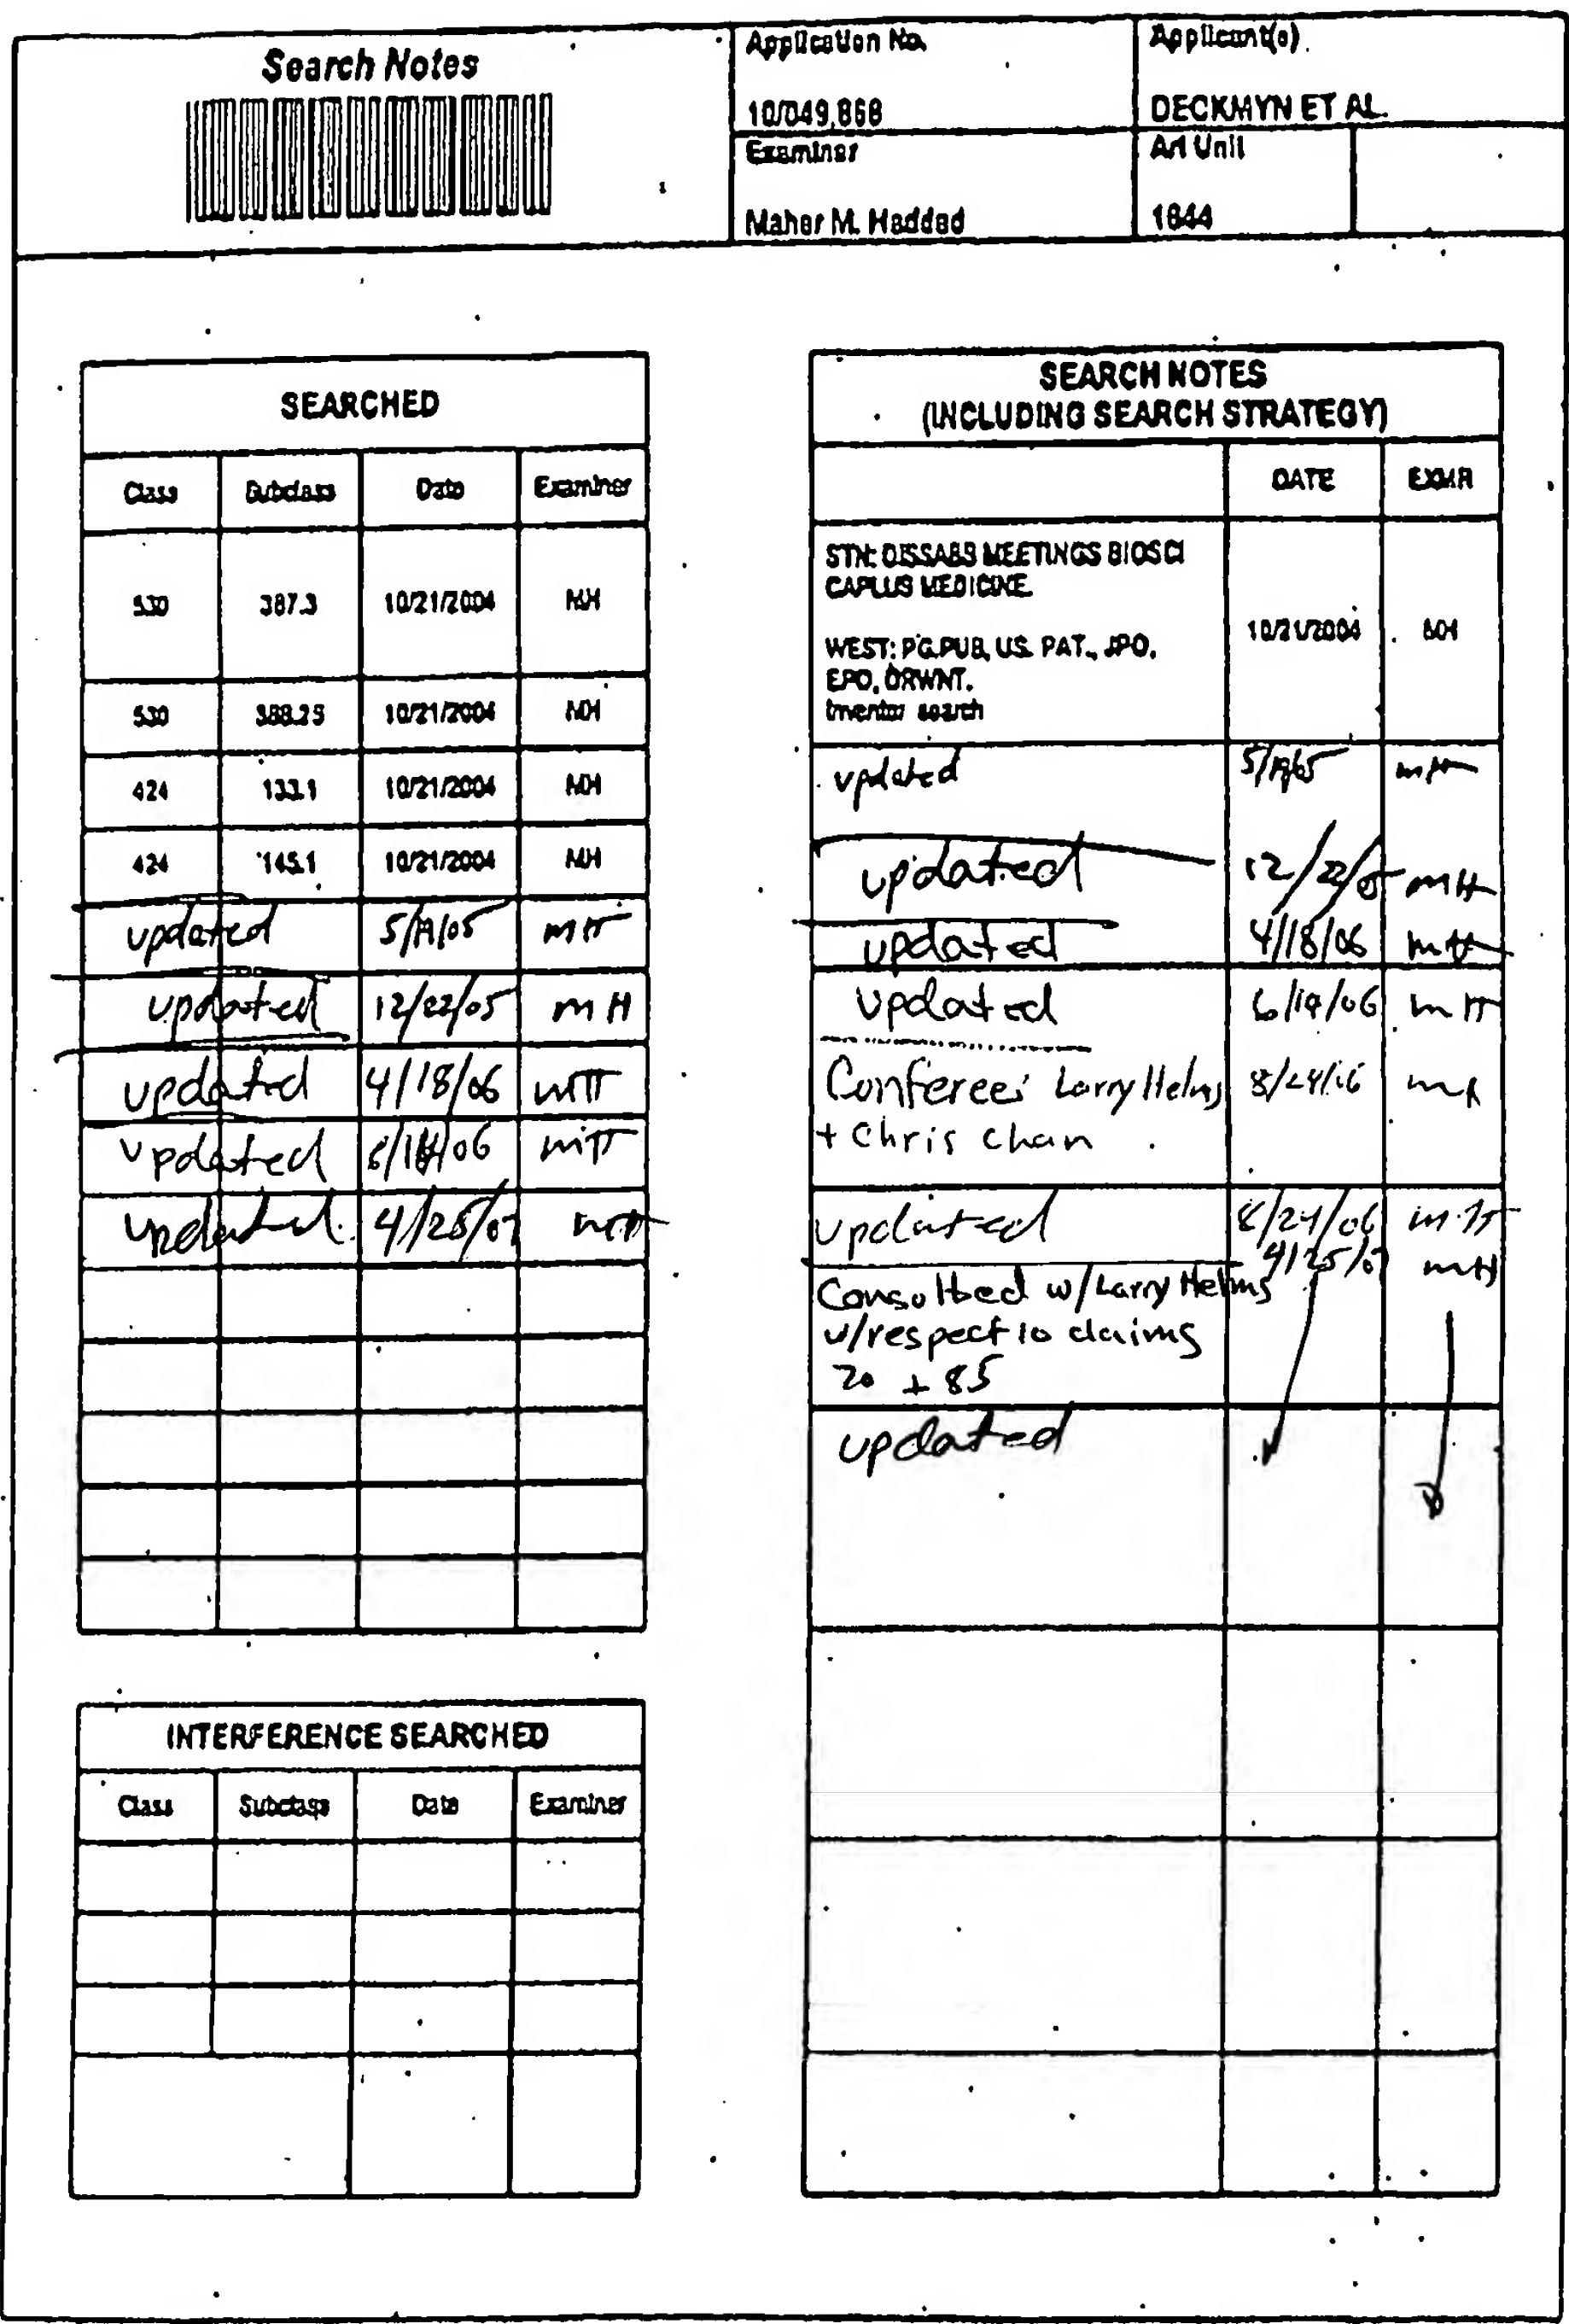 Search Notes
Application No.
Applicant(s)
10/049,868
DECKMYN ET AL.
Examiner
Art Unit
Maher M. Haddad
1644
SEARCHED
Class Subclass Date Examiner
530 387.3 10/21/2004 MH
530 388.25 10/21/2004 MH
424 133.1 10/21/2004 MH
424 145.1 10/21/2004 MH
updated MH
updated 12/22/05 MH
updated 4/18/06 MH
updated MH
updated 4/25/07 MH
INTERFERENCE SEARCHED
Class Subclass Date Examiner
SEARCH NOTES
(INCLUDING SEARCH STRATEGY)
DATE EXMR
STN: DISSABS MEETINGS BIOSCI
CAPLUS MEDICINE.
WEST: PG.PUB, US. PAT., JPO,
EPO, DRWNT.
Inventor search
10/21/2004 MH
updated MH
updated 12/22/05 MH
updated 4/18/06 MH
updated MH
Conferees: Larry Helms 8/24/06 MH
+ Chris Chan
updated 8/24/06 MH
Consulted w/Larry Helms 4/25/07 MH
w/respect to claims
20 + 85
updated